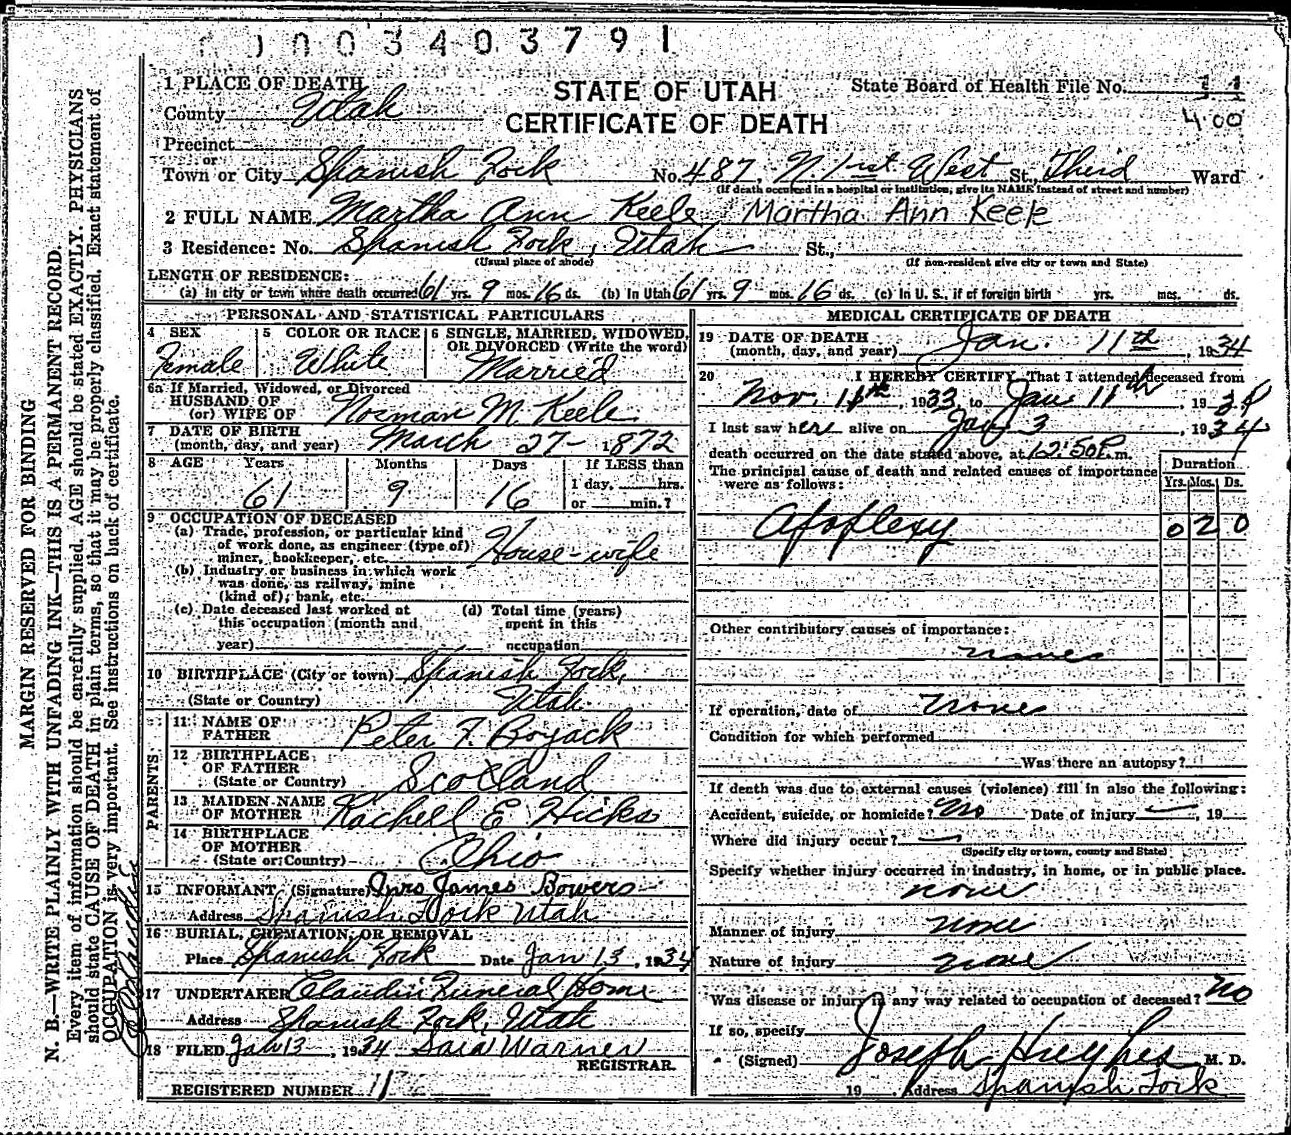 0003403791
1 PLACE OF DEATH
STATE OF UTAH
State Board of Health File No. 11
County Utah
CERTIFICATE OF DEATH
400
Precinct
or
Town or City Spanish Fork No. 487, N. 1st West St., Third Ward
(If death occurred in a hospital or institution, give its NAME instead of street and number)
2 FULL NAME Martha Ann Keele, Martha Ann Keele
3 Residence: No. Spanish Fork, Utah St.,
(Usual place of abode) (If non-resident give city or town and State)
LENGTH OF RESIDENCE:
(a) In city or town where death occurred 61 yrs. 9 mos. 16 ds. (b) In Utah 61 yrs. 9 mos. 16 ds. (c) In U. S., if of foreign birth yrs. mos. ds.
PERSONAL AND STATISTICAL PARTICULARS
4 SEX Female
5 COLOR OR RACE White
6 SINGLE, MARRIED, WIDOWED,
OR DIVORCED (Write the word)
Married
6a If Married, Widowed, or Divorced
HUSBAND OF
(or) WIFE OF Norman M. Keele
7 DATE OF BIRTH
(month, day, and year) March 27- 1872
8 AGE Years Months Days If LESS than
1 day, hrs.
61 9 16 or min.?
9 OCCUPATION OF DECEASED
(a) Trade, profession, or particular kind
of work done, as engineer (type of)
miner, bookkeeper, etc. House-wife
(b) Industry or business in which work
was done, as railway, mine
(kind of), bank, etc.
(c) Date deceased last worked at
this occupation (month and
year)
(d) Total time (years)
spent in this
occupation
10 BIRTHPLACE (City or town) Spanish Fork,
(State or Country) Utah
PARENTS
11 NAME OF
FATHER Peter F. Boyack
12 BIRTHPLACE
OF FATHER
(State or Country) Scotland
13 MAIDEN NAME
OF MOTHER Rachell E Hicks
14 BIRTHPLACE
OF MOTHER
(State or Country) Ohio
15 INFORMANT (Signature) Mrs James Bowers
Address Spanish Fork Utah
16 BURIAL, CREMATION, OR REMOVAL
Place Spanish Fork Date Jan 13, 1934
17 UNDERTAKER Claudin Funeral Home
Address Spanish Fork, Utah
18 FILED Jan 13, 1934 Sara Warner
REGISTRAR.
REGISTERED NUMBER
MEDICAL CERTIFICATE OF DEATH
19 DATE OF DEATH
(month, day, and year) Jan. 11th, 1934
20 I HEREBY CERTIFY, That I attended deceased from
Nov. 11th, 1933, to Jan 11th, 1934
I last saw her alive on Jan 3, 1934
death occurred on the date stated above, at 12:50P.m.
The principal cause of death and related causes of importance
were as follows:
Duration
Yrs. Mos. Ds.
Apoplexy 0 2 0
Other contributory causes of importance:
none
If operation, date of none
Condition for which performed
Was there an autopsy?
If death was due to external causes (violence) fill in also the following:
Accident, suicide, or homicide? No Date of injury , 19
Where did injury occur?
(Specify city or town, county and State)
Specify whether injury occurred in industry, in home, or in public place.
none
Manner of injury none
Nature of injury none
Was disease or injury in any way related to occupation of deceased? No
If so, specify
(Signed) Joseph Hughes M. D.
19 Address Spanish Fork
MARGIN RESERVED FOR BINDING
N. B.—WRITE PLAINLY WITH UNFADING INK—THIS IS A PERMANENT RECORD.
Every item of information should be carefully supplied. AGE should be stated EXACTLY. PHYSICIANS
should state CAUSE OF DEATH in plain terms, so that it may be properly classified. Exact statement of
OCCUPATION is very important. See instructions on back of certificate.